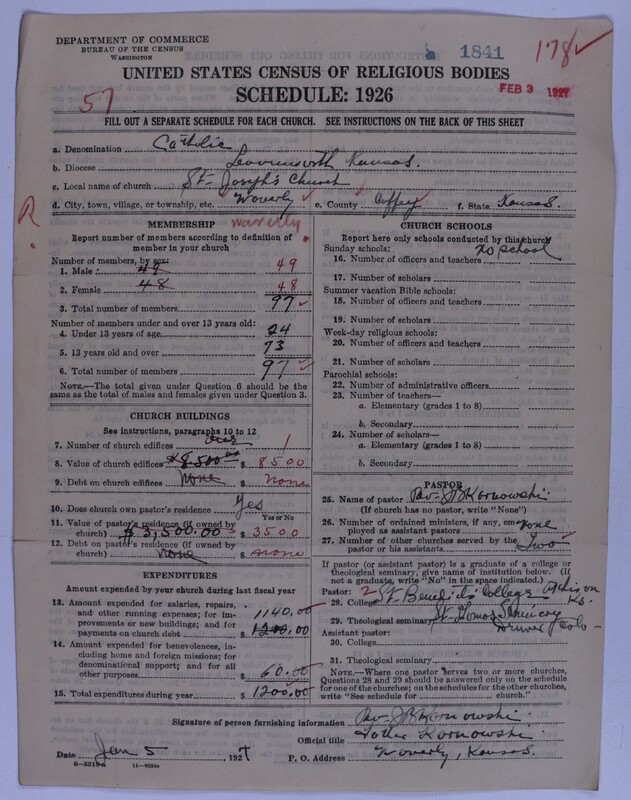 DEPARTMENT OF COMMERCE
BUREAU OF THE CENSUS
WASHINGTON
1841
178
UNITED STATES CENSUS OF RELIGIOUS BODIES
SCHEDULE: 1926
FEB 3 1927
57
FILL OUT A SEPARATE SCHEDULE FOR EACH CHURCH. SEE INSTRUCTIONS ON THE BACK OF THIS SHEET
a. Denomination Catholic
b. Diocese Leavenworth Kansas.
c. Local name of church St. Joseph's Church
d. City, town, village, or township, etc. Waverly e. County Coffey f. State Kansas.
R.
Waverly
MEMBERSHIP
Report number of members according to definition of member in your church
Number of members, by sex:
1. Male 49 49
2. Female 48 48
3. Total number of members 97
Number of members under and over 13 years old:
4. Under 13 years of age 24
5. 13 years old and over 73
6. Total number of members 97
NOTE.—The total given under Question 6 should be the same as the total of males and females given under Question 3.
CHURCH BUILDINGS
See instructions, paragraphs 10 to 12
7. Number of church edifices One 1
8. Value of church edifices $8,500.00 $ 8500
9. Debt on church edifices None $ none
10. Does church own pastor's residence Yes
Yes or No
11. Value of pastor's residence (if owned by church) $3,500.00 $ 3500
12. Debt on pastor's residence (if owned by church) none $ none
EXPENDITURES
Amount expended by your church during last fiscal year
13. Amount expended for salaries, repairs, and other running expenses; for improvements or new buildings; and for payments on church debt $ 1140.00 1200.00
14. Amount expended for benevolences, including home and foreign missions; for denominational support; and for all other purposes $ 60.00
15. Total expenditures during year $ 1200.00
CHURCH SCHOOLS
Report here only schools conducted by this church
Sunday schools: No School
16. Number of officers and teachers
17. Number of scholars
Summer vacation Bible schools:
18. Number of officers and teachers
19. Number of scholars
Week-day religious schools:
20. Number of officers and teachers
21. Number of scholars
Parochial schools:
22. Number of administrative officers
23. Number of teachers—
a. Elementary (grades 1 to 8)
b. Secondary
24. Number of scholars—
a. Elementary (grades 1 to 8)
b. Secondary
PASTOR
25. Name of pastor Rev. J B Kornowski
(If church has no pastor, write "None")
26. Number of ordained ministers, if any, employed as assistant pastors none
27. Number of other churches served by the pastor or his assistants Two
If pastor (or assistant pastor) is a graduate of a college or theological seminary, give name of institution below. (If not a graduate, write "No" in the space indicated.)
Pastor: 2
28. College St. Benedict's College Atchison Ks.
29. Theological seminary St. Thomas Seminary Denver Colo-
Assistant pastor:
30. College
31. Theological seminary
NOTE.—Where one pastor serves two or more churches, Questions 28 and 29 should be answered only on the schedule for one of the churches; on the schedules for the other churches, write "See schedule for church."
Signature of person furnishing information Rev. J B Kornowski
Official title Father Kornowski
Date Jan 5, 1927 P. O. Address Waverly, Kansas.
11—9584a